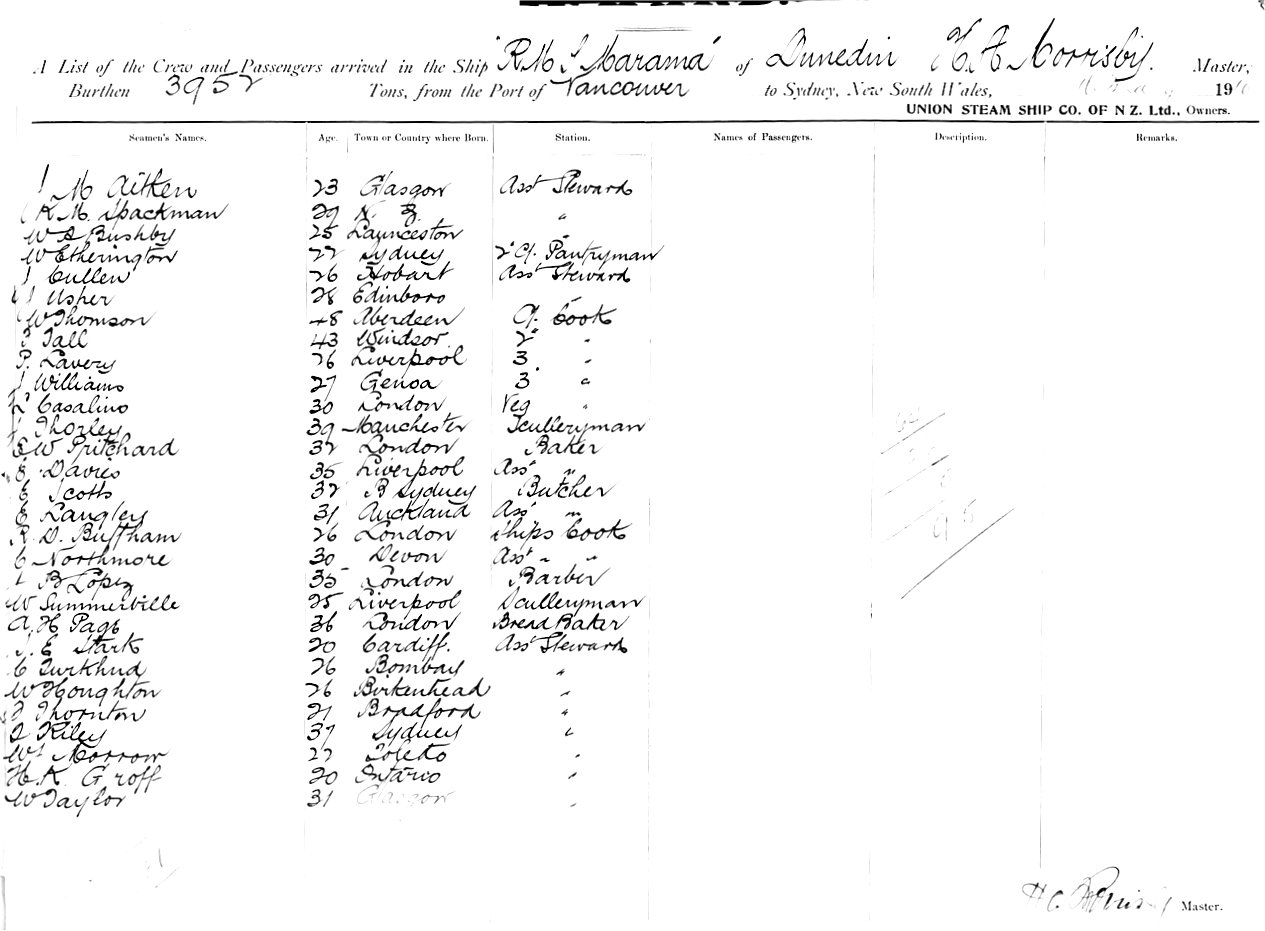 A List of the Crew and Passengers arrived in the Ship "R.M.S Marama" of Dunedin H. A Morrisby. Master,
Burthen 3952 Tons, from the Port of Vancouver to Sydney, New South Wales, 19
UNION STEAM SHIP CO. OF N Z. Ltd., Owners.
Seamen's Names. Age. Town or Country where Born. Station. Names of Passengers. Description. Remarks.
M Aitken 23 Glasgow Asst Steward
R.M. Spackman 29 N. Z. "
W A Bushby 25 Launceston "
W Etherington 22 Sydney 2nd Cl. Pantryman
J Cullen 26 Hobart Asst Steward
J Usher 28 Edinboro "
W Thomson 48 Aberdeen Cf. Cook
Tall 43 Windsor. 2 "
P. Lavery 26 Liverpool 3 "
J Williams 27 Genoa 3 "
L Casalino 30 London Veg "
Thorley 39 Manchester Sculleryman
E W Pritchard 32 London Baker
E Davies 35 Liverpool Asst "
E Scotts 32 B Sydney Butcher
E Langley 31 Auckland Asst "
R. D. Buffham 26 London Ships Cook
C Northmore 30 Devon Asst " "
B Lopez 35 London Barber
W Summerville 25 Liverpool Sculleryman
A. H Page 36 London Bread Baker
J. E Stark 20 Cardiff. Asst Steward
C Turkhud 26 Bombay "
W Houghton 26 Birkenhead "
Thornton 21 Bradford "
Kiley 37 Sydney "
Wm Morrow 27 Toledo "
H. K. Groff 20 Ontario "
W Taylor 31 Glasgow "
96
Master.